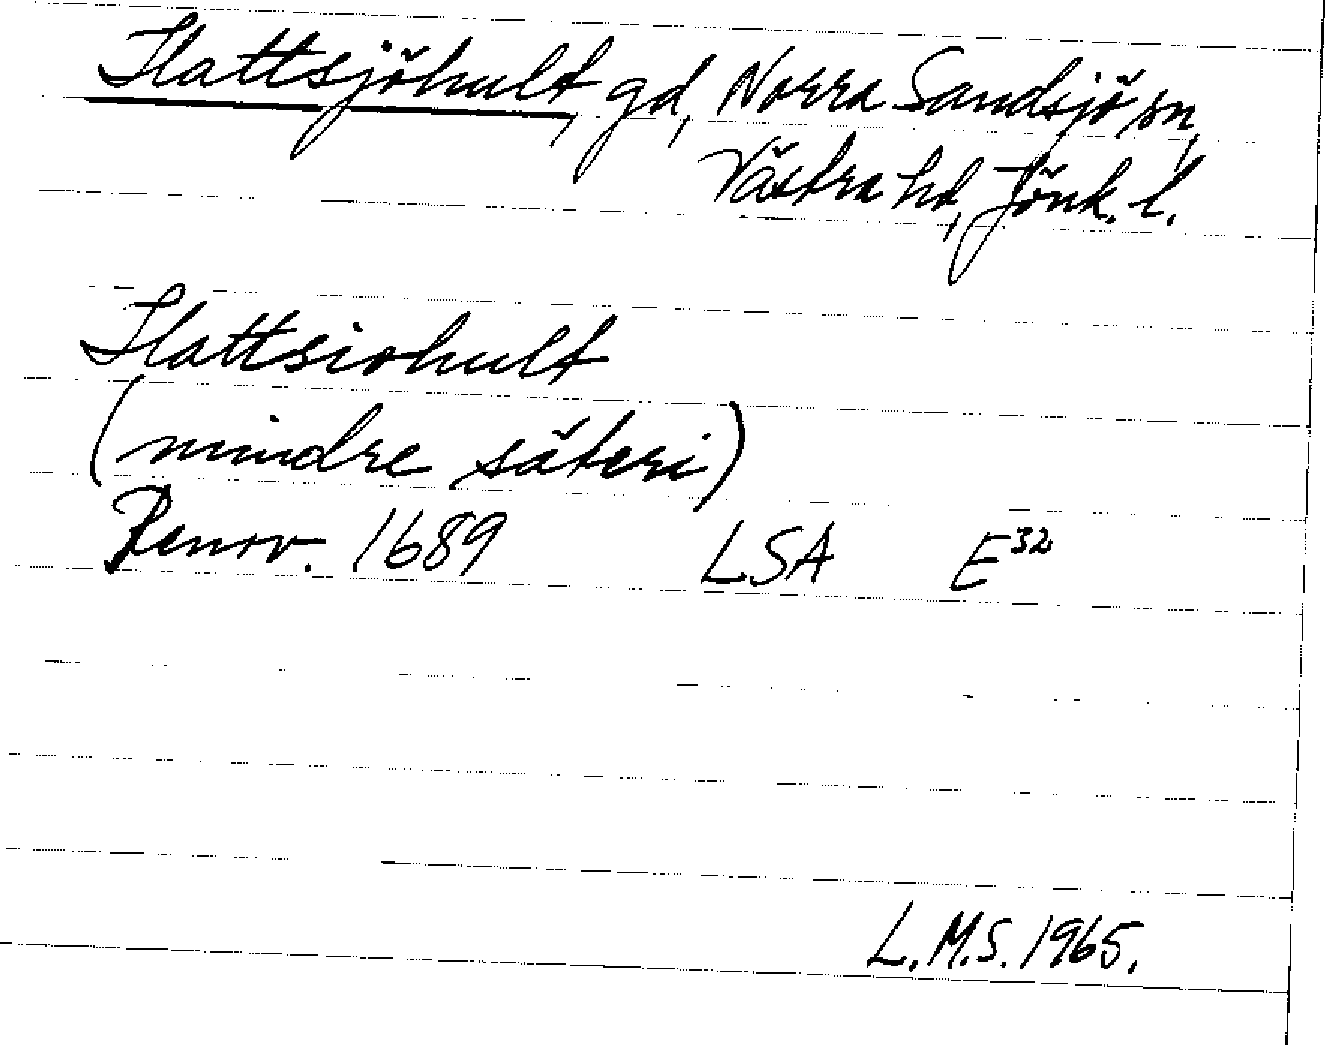 Hattsjöhult, gd, Norra Sandsjö sn,
Västra hd, Jönk. l.
Hattsiohult
(mindre säteri)
Renov. 1689 LSA E32
L.M.S. 1965.